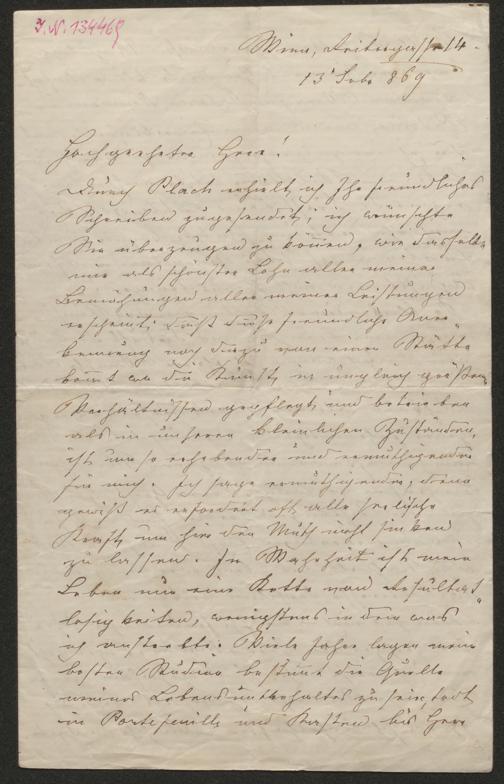 I. N. 134469
Wien, 14
13 869
Hochgeehrter Herr!
Durch Plach erhielt ich Ihr freundliches
Schreiben zugesendet; ich wünschte
Sie überzeugen zu können, wie dasselbe
mir als schönster Lohn aller meiner
Bemühungen aller meiner Leistungen
erscheint; daß diese freundliche Aner-
kennung noch dazu von einer Stätte
kömt wo die Kunst, in ungleich größern
Verhältnissen gepflegt und betrieben
als in unseren kleinlichen Zuständen,
ist um so erhebender und ermuthigender
für mich. Ich sage ermuthigender, denn
gewiß es erfordert oft alle seelische
Kraft, um hier den Muth nicht sinken
zu lassen. In Wahrheit ist mein
Leben nur eine Kette von Resultat-
losigkeiten, wenigstens in dem was
ich anstrebte. Viele Jahre lagen meine
besten Studien bestimt die Quelle
meines Lebensunterhaltes zu sein, todt
in Portefeuille und Kasten bis Herr